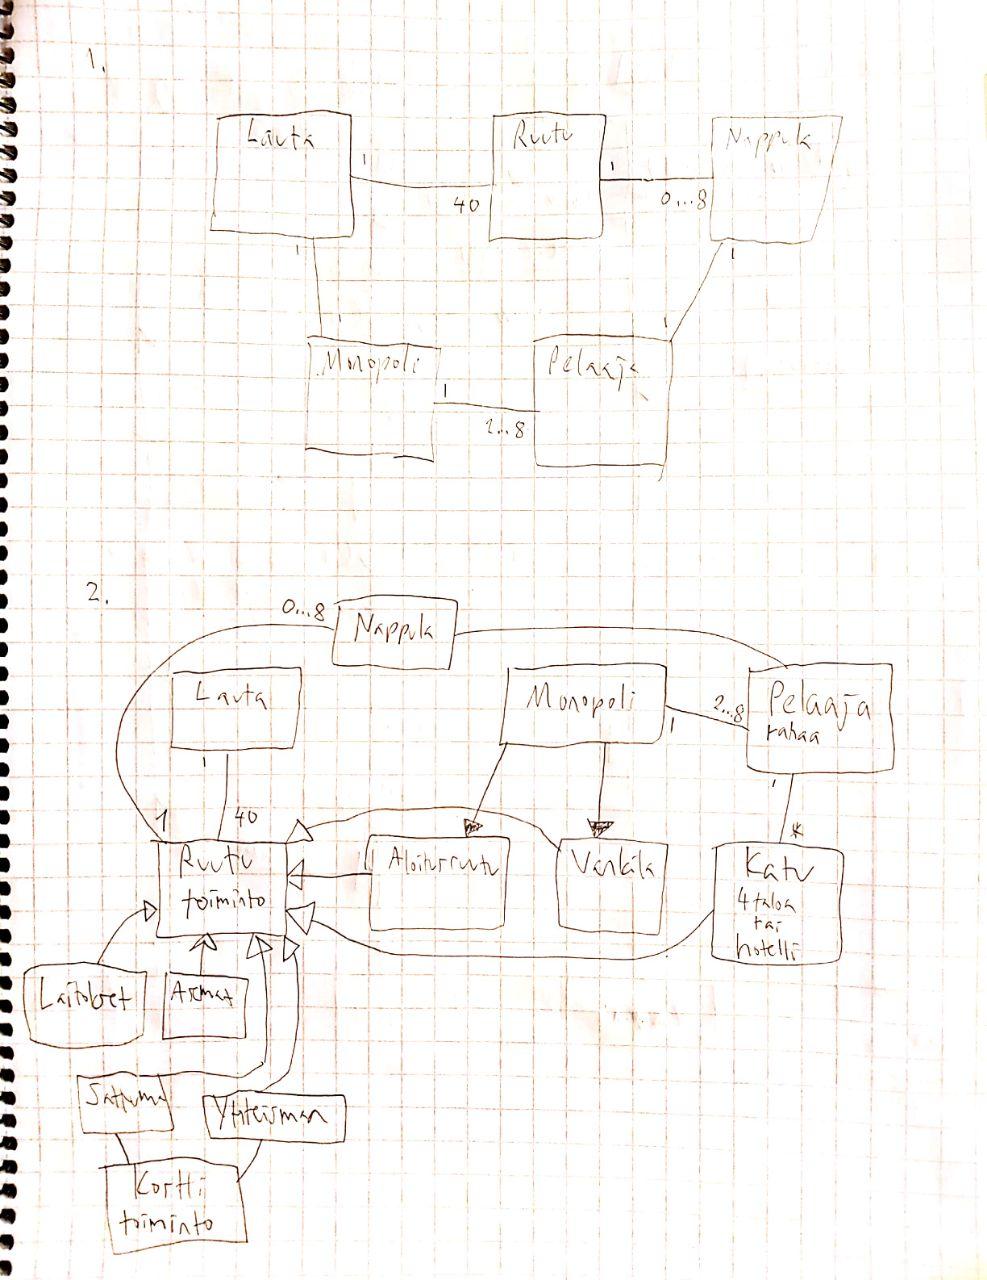 1.
Lauta
Ruutu
Nappula
1
40
1
0...8
1
1
1
1
Monopoli
Pelaaja
1
2...8
2.
0...8
Nappula
Lauta
Monopoli
Pelaaja
rahaa
2...8
1
1
40
1
1
*
Ruutu
toiminto
Aloitusruutu
Vankila
Katu
4 taloa
tai
hotelli
Laitokset
Asemat
Sattuma
Yhteismaa
Kortti
toiminto